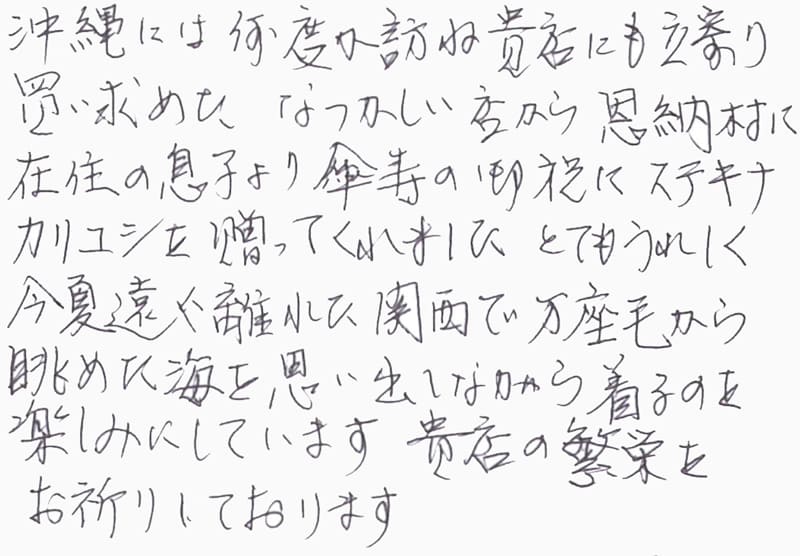 沖縄には何度か訪ね貴店にも立寄り
買い求めた なつかしい店から 恩納村に
在住の息子より 傘寿の御祝に ステキナ
カリユシを 贈ってくれました とてもうれしく
今夏遠く離れた関西で 万座毛から
眺めた海を思い出しながら着るのを
楽しみにしています 貴店の繁栄を
お祈りしております